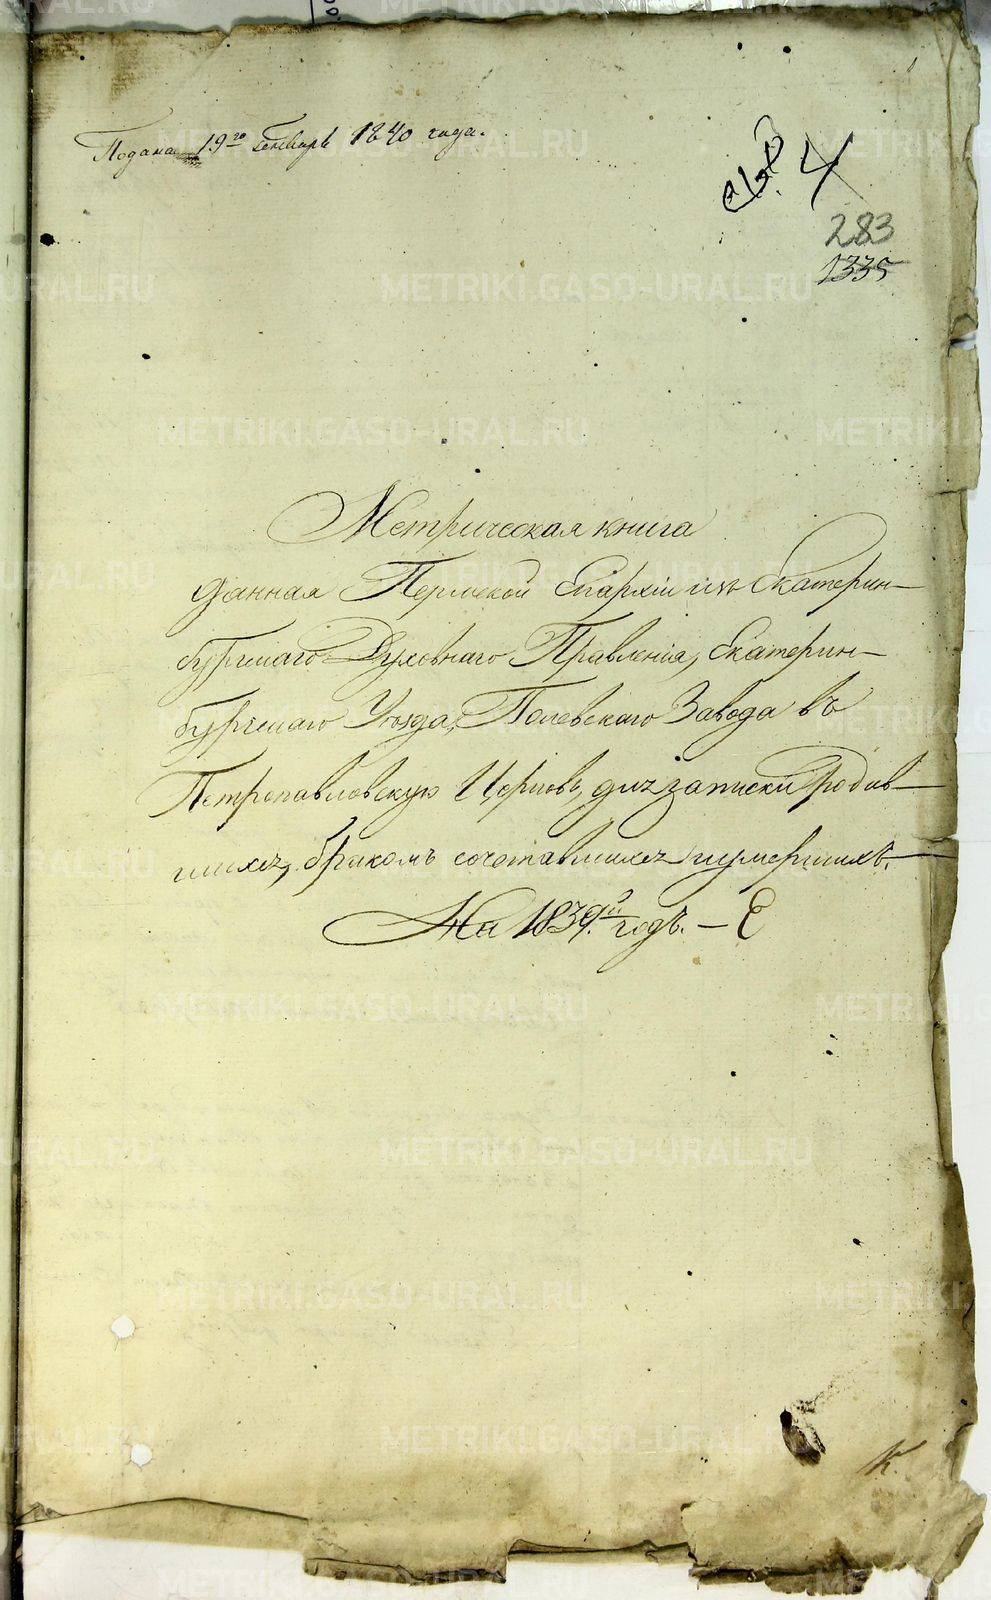 Подана 19го Генваря 1840 года.
4
283
1335
Метрическая книга
данная Пермской Епархіи изъ Екатерин-
бургскаго Духовнаго Правленія, Екатерин-
бургскаго Уезда, Полевскаго Завода въ
Петропавловскую Церковь, для записки родив-
шихся, бракомъ сочетавшихся и умершихъ.
На 1839й годъ.
К.
METRIKI.GASO-URAL.RU